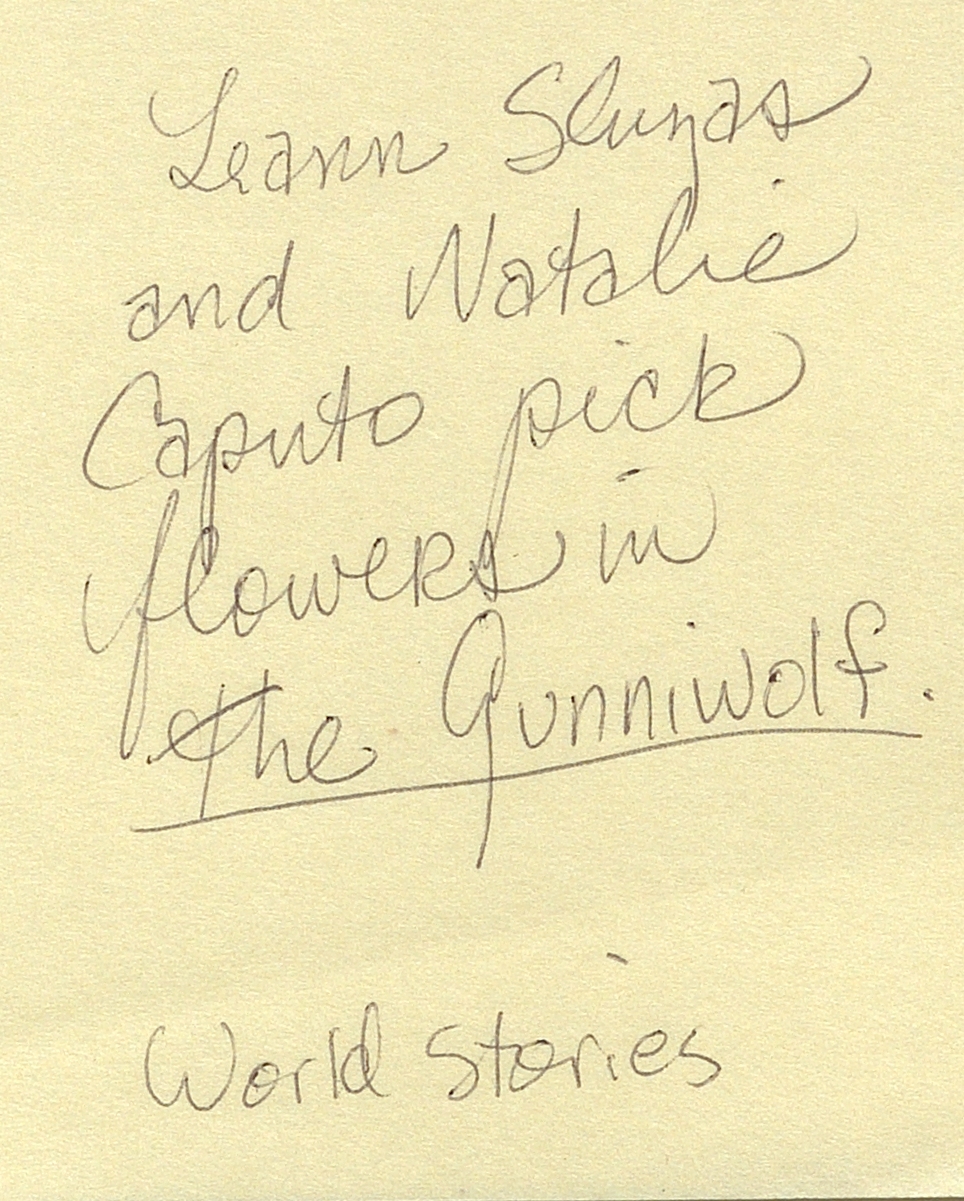 Leann Sluzas
and Natalie
Caputo pick
flowers in
the Gunniwolf.
World Stories